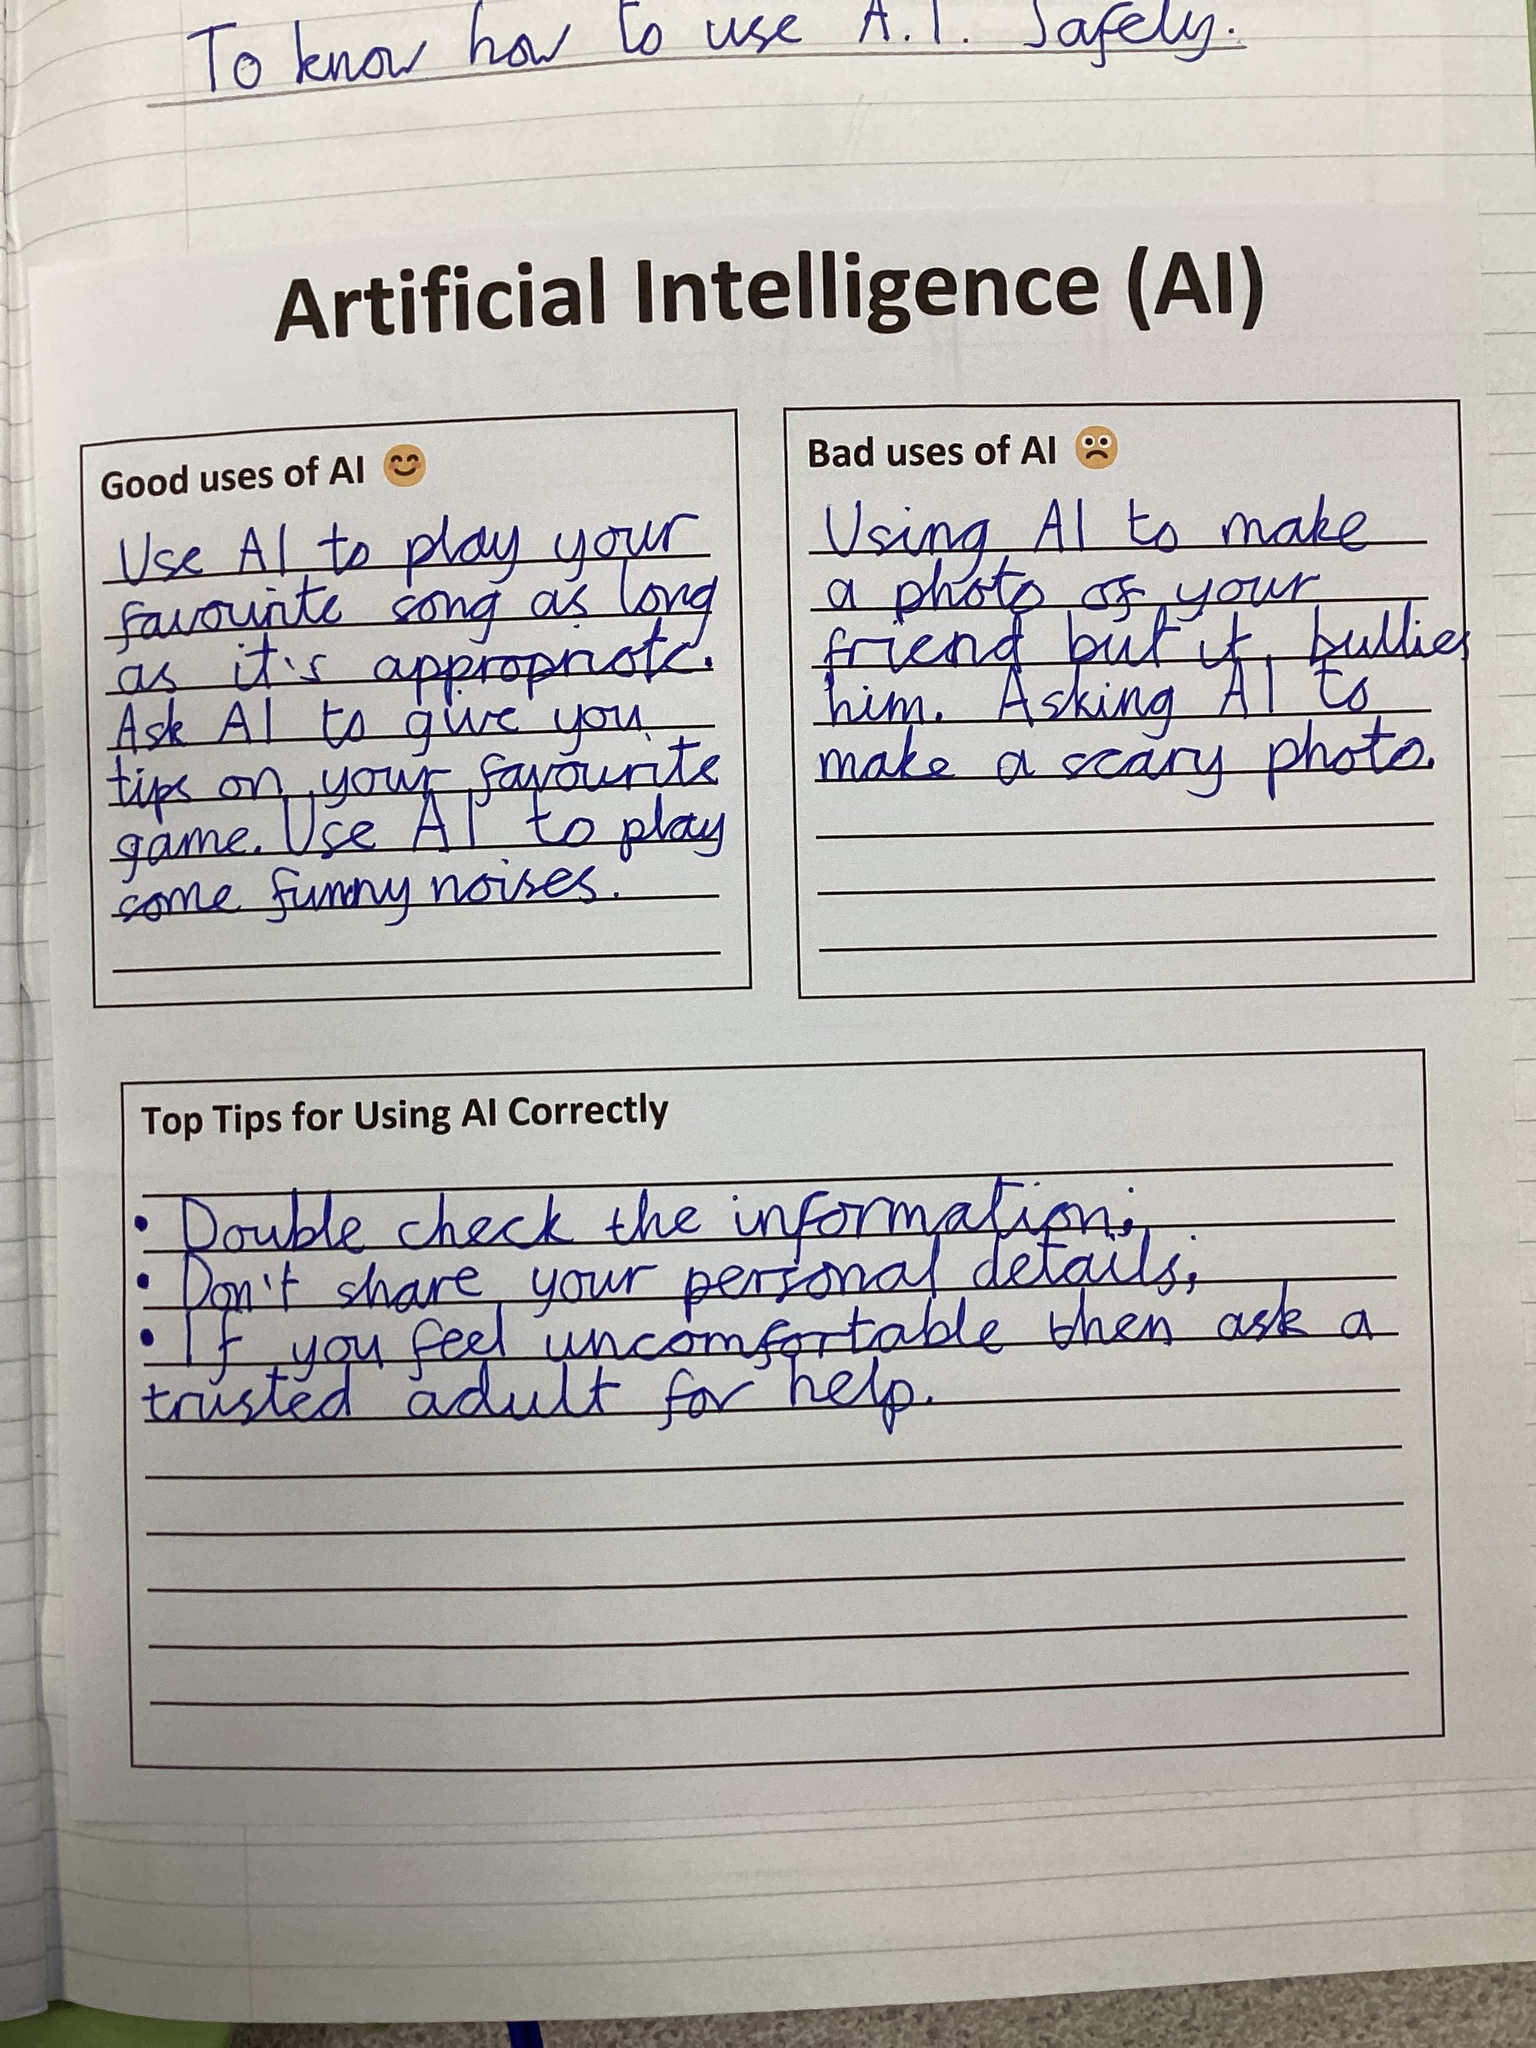 To know how to use A.I. Safely.
Artificial Intelligence (AI)
Good uses of AI 😊
Use AI to play your
favourite song as long
as it's appropriate.
Ask AI to give you
tips on your favourite
game. Use AI to play
some funny noises.
Bad uses of AI ☹️
Using AI to make
a photo of your
friend but it bullies
him. Asking AI to
make a scary photo.
Top Tips for Using AI Correctly
• Double check the information;
• Don't share your personal details;
• If you feel uncomfortable then ask a
trusted adult for help.